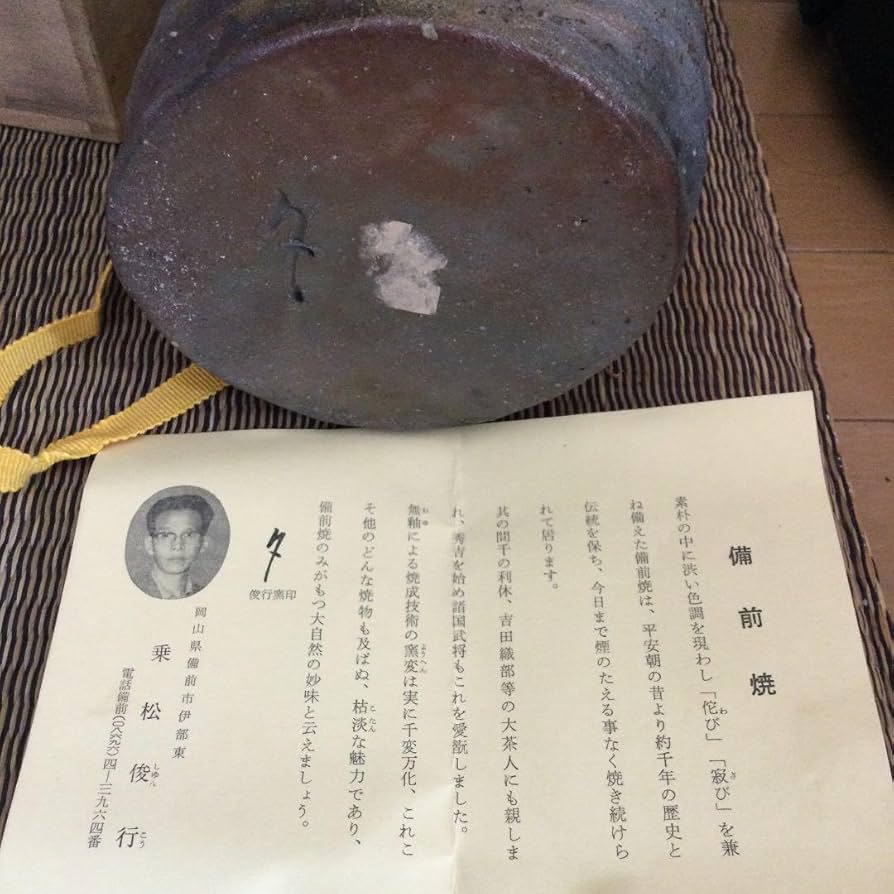 備前焼
素朴の中に渋い色調を現わし「侘び」「寂び」を兼
ね備えた備前焼は、平安朝の昔より約千年の歴史と
伝統を保ち、今日まで煙のたえる事なく焼き続けら
れて居ります。
其の間千の利休、吉田織部等の大茶人にも親しま
れ、秀吉を始め諸国武将もこれを愛翫しました。
無釉による焼成技術の窯変は実に千変万化、これこ
そ他のどんな焼物も及ばぬ、枯淡な魅力であり、
備前焼のみがもつ大自然の妙味と云えましょう。
俊行窯印
岡山県備前市伊部東
乗松俊行
電話備前(〇八六九六)四―三九六四番